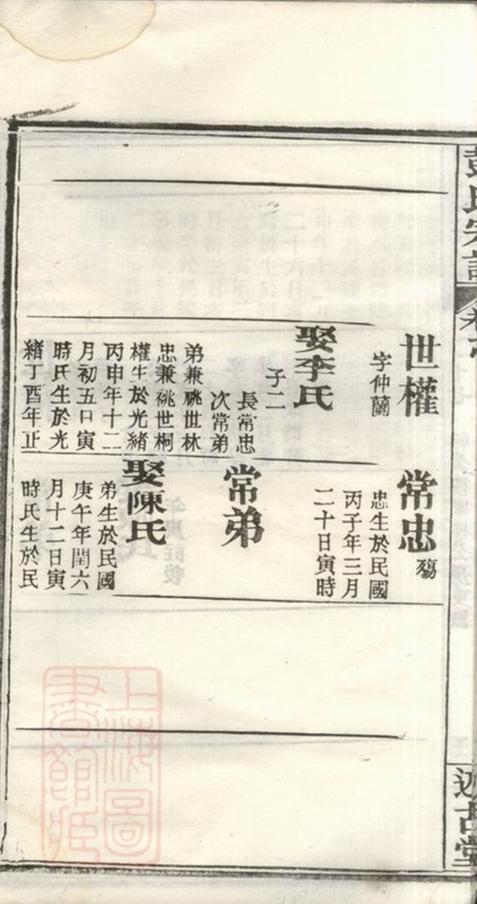 氏宗譜
世權
字仲蘭
娶李氏
子二
長常忠
次常弟
弟兼祧世林
忠兼祧世桐
權生於光緒
丙申年十二
月初五日寅
時氏生於光
緒丁酉年正
常忠殤
忠生於民國
丙子年三月
二十日寅時
常弟
娶陳氏
弟生於民國
庚午年閏六
月十二日寅
時氏生於民
古堂
上海圖
書館藏